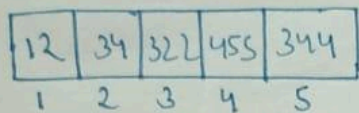 12 34 322 455 344
1 2 3 4 5